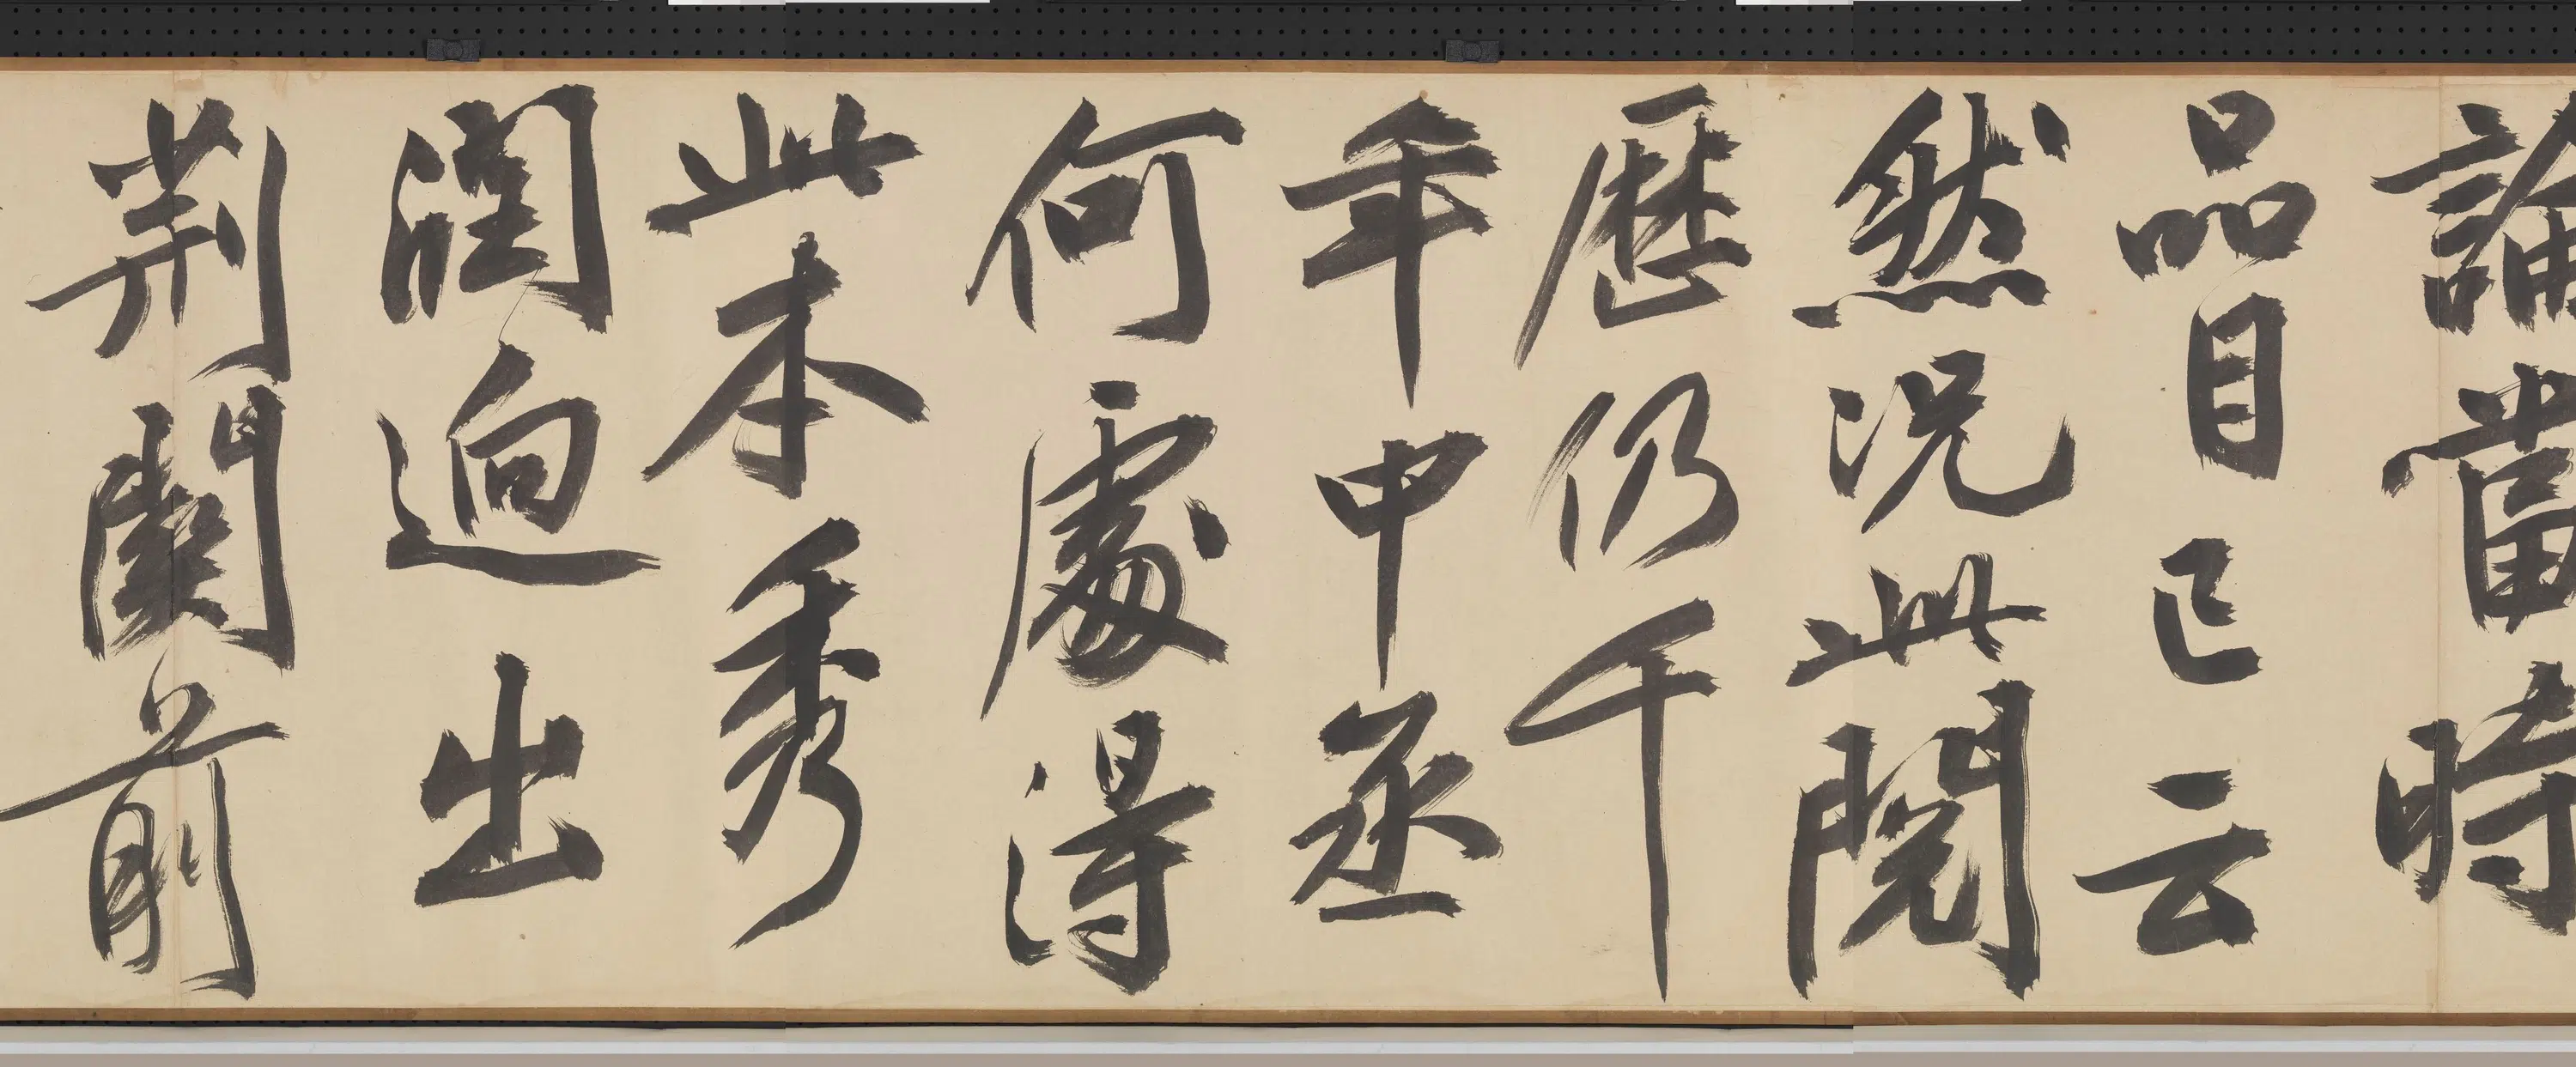 論當時
品目已云
然況此閱
歷仍千
年中丞
何處得
此本秀
潤迥出
荆關前